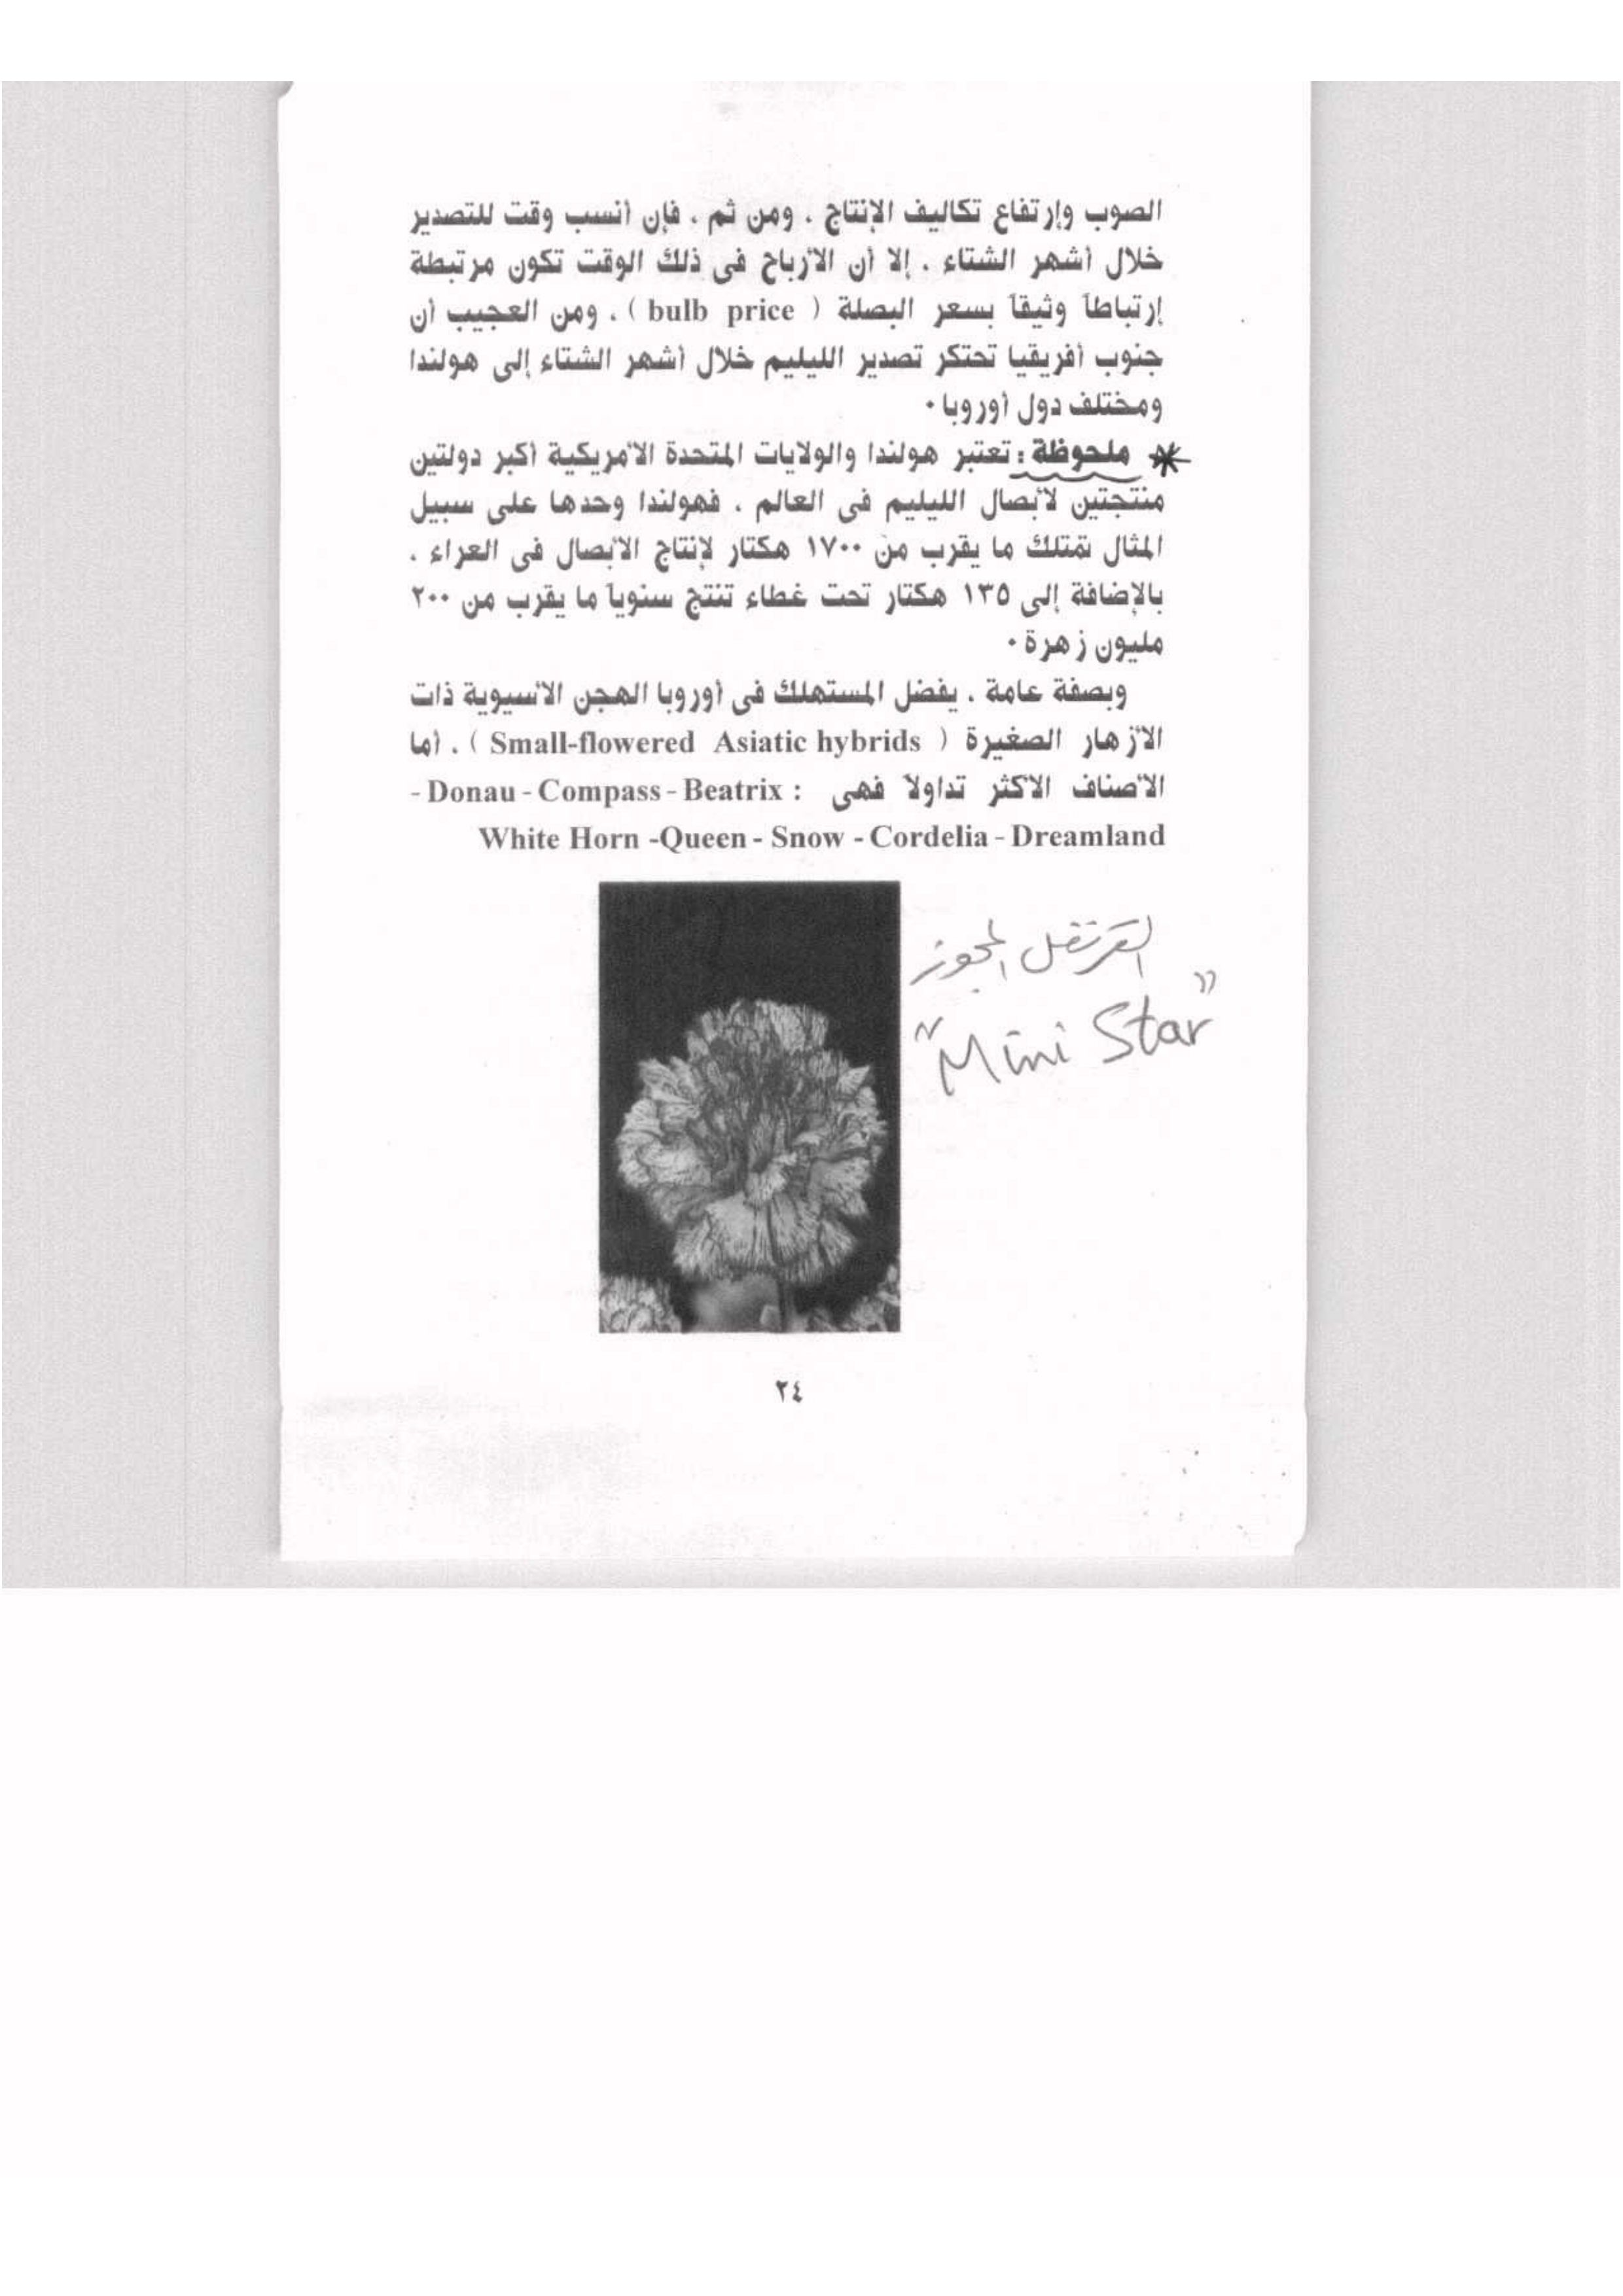 الصوب وإرتفاع تكاليف الإنتاج ، ومن ثم ، فإن أنسب وقت للتصدير
خلال أشهر الشتاء ، إلا أن الأرباح فى ذلك الوقت تكون مرتبطة
إرتباطاً وثيقاً بسعر البصلة ( bulb price ) ، ومن العجيب أن
جنوب أفريقيا تحتكر تصدير الليليم خلال أشهر الشتاء إلى هولندا
ومختلف دول أوروبا .
* ملحوظة : تعتبر هولندا والولايات المتحدة الأمريكية أكبر دولتين
منتجتين لأبصال الليليم فى العالم ، فهولندا وحدها على سبيل
المثال تمتلك ما يقرب من ١٧٠٠ هكتار لإنتاج الأبصال فى العراء ،
بالإضافة إلى ١٣٥ هكتار تحت غطاء تنتج سنوياً ما يقرب من ٢٠٠
مليون زهرة .
وبصفة عامة ، يفضل المستهلك فى أوروبا الهجن الأسيوية ذات
الأزهار الصغيرة ( Small-flowered Asiatic hybrids ) ، أما
الأصناف الأكثر تداولاً فهى : Donau - Compass - Beatrix -
White Horn -Queen - Snow - Cordelia - Dreamland
القرنفل المجوز
"Mini Star"
٢٤